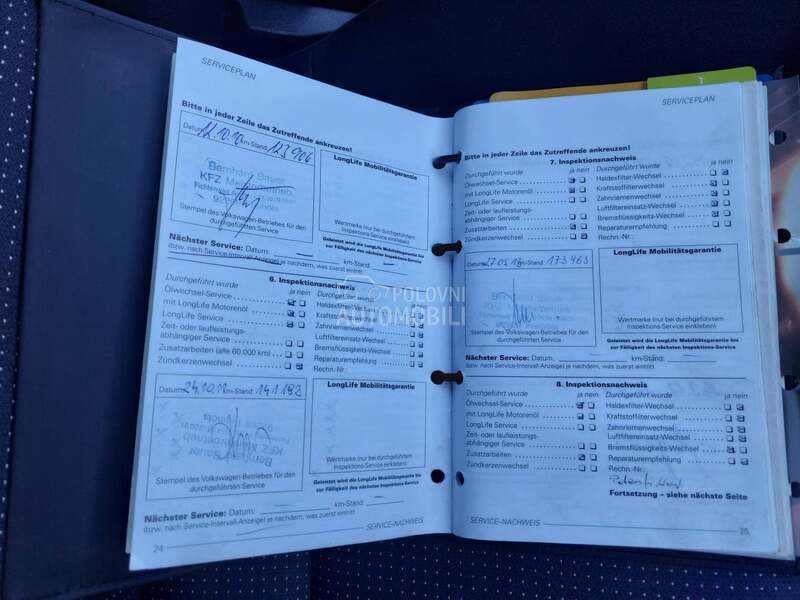 SERVICEPLAN
Bitte in jeder Zeile das Zutreffende ankreuzen!
Datum: 12.10.10 km-Stand: 123906
Bernhard Bauer
KFZ
LongLife Mobilitätsgarantie
Wertmarke (nur bei durchgeführtem
Inspektions-Service einkleben)
Stempel des Volkswagen-Betriebes für den
durchgeführten Service
Geleistet wird die LongLife Mobilitätsgarantie bis
zur Fälligkeit des nächsten Inspektions-Service
Nächster Service: Datum: km-Stand:
(bzw. nach Service-Intervall-Anzeige) je nachdem, was zuerst eintritt
6. Inspektionsnachweis
Durchgeführt wurde ja nein
Ölwechsel-Service
mit LongLife Motorenöl
LongLife Service
Zeit- oder laufleistungs-
abhängiger Service
Zusatzarbeiten (alle 60.000 km)
Zündkerzenwechsel
Durchgeführt wurde ja nein
Haldexfilter-Wechsel
Kraftstofffilterwechsel
Zahnriemenwechsel
Luftfiltereinsatz-Wechsel
Bremsflüssigkeits-Wechsel
Reparaturempfehlung
Rechn.-Nr.:
Datum: 24.10.11 km-Stand: 141193
LongLife Mobilitätsgarantie
Wertmarke (nur bei durchgeführtem
Inspektions-Service einkleben)
Stempel des Volkswagen-Betriebes für den
durchgeführten Service
Geleistet wird die LongLife Mobilitätsgarantie bis
zur Fälligkeit des nächsten Inspektions-Service
Nächster Service: Datum: km-Stand:
(bzw. nach Service-Intervall-Anzeige) je nachdem, was zuerst eintritt
24 SERVICE-NACHWEIS
SERVICEPLAN
Bitte in jeder Zeile das Zutreffende ankreuzen!
7. Inspektionsnachweis
Durchgeführt wurde ja nein
Ölwechsel-Service
mit LongLife Motorenöl
LongLife Service
Zeit- oder laufleistungs-
abhängiger Service
Zusatzarbeiten
Zündkerzenwechsel
Durchgeführt wurde ja nein
Haldexfilter-Wechsel
Kraftstofffilterwechsel
Zahnriemenwechsel
Luftfiltereinsatz-Wechsel
Bremsflüssigkeits-Wechsel
Reparaturempfehlung
Rechn.-Nr.:
Datum: km-Stand: 173463
LongLife Mobilitätsgarantie
Wertmarke (nur bei durchgeführtem
Inspektions-Service einkleben)
Stempel des Volkswagen-Betriebes für den
durchgeführten Service
Geleistet wird die LongLife Mobilitätsgarantie bis
zur Fälligkeit des nächsten Inspektions-Service
Nächster Service: Datum: km-Stand:
(bzw. nach Service-Intervall-Anzeige) je nachdem, was zuerst eintritt
8. Inspektionsnachweis
Durchgeführt wurde ja nein
Ölwechsel-Service
mit LongLife Motorenöl
LongLife Service
Zeit- oder laufleistungs-
abhängiger Service
Zusatzarbeiten
Zündkerzenwechsel
Durchgeführt wurde ja nein
Haldexfilter-Wechsel
Kraftstofffilterwechsel
Zahnriemenwechsel
Luftfiltereinsatz-Wechsel
Bremsflüssigkeits-Wechsel
Reparaturempfehlung
Rechn.-Nr.:
Fortsetzung – siehe nächste Seite
SERVICE-NACHWEIS 25
POLOVNI
AUTOMOBILI